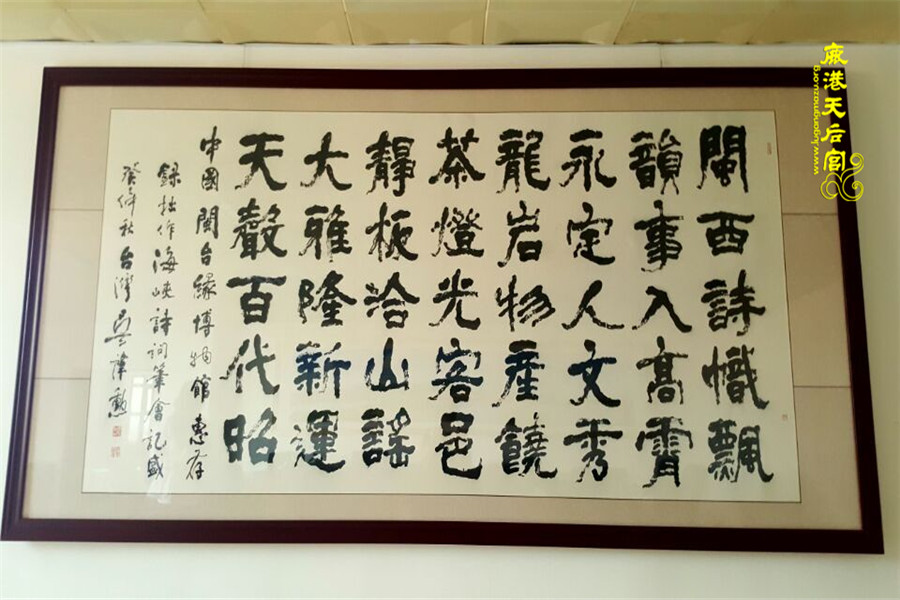 閩西詩幟飄
韻事入高霄
永定人文秀
龍岩物產饒
茶燈光客邑
靜板洽山謠
大雅隆新運
天聲百代昭
中國閩台緣博物館惠存
錄拙作海峽詩詞筆會記盛
癸秋台灣吳勳
鹿港天后宮